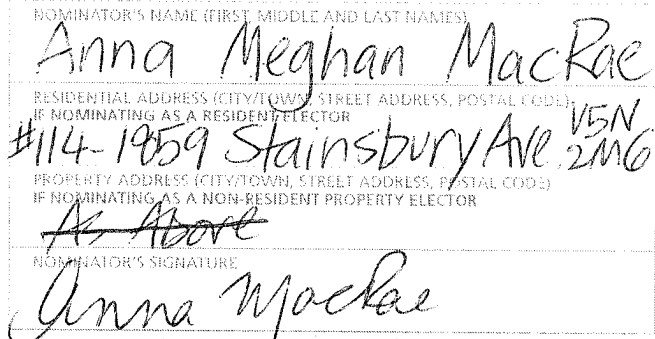 NOMINATOR'S NAME (FIRST, MIDDLE AND LAST NAMES)
Anna Meghan MacRae
RESIDENTIAL ADDRESS (CITY/TOWN, STREET ADDRESS, POSTAL CODE)
IF NOMINATING AS A RESIDENT ELECTOR
#114-1859 Stainsbury Ave. V5N 2M6
PROPERTY ADDRESS (CITY/TOWN, STREET ADDRESS, POSTAL CODE)
IF NOMINATING AS A NON-RESIDENT PROPERTY ELECTOR
As Above
NOMINATOR'S SIGNATURE
Anna MacRae